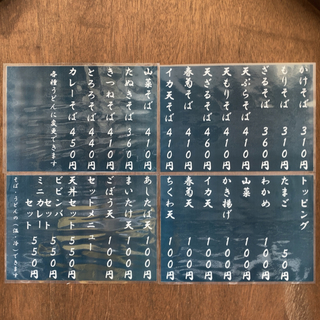 かけそば 310円
もりそば 310円
ざるそば 360円
天ぷらそば 410円
天もりそば 410円
天ざるそば 460円
春菊そば 410円
イカ天そば 410円
山菜そば 410円
たぬきそば 360円
きつねそば 410円
とろろそば 440円
カレーそば 450円
各種うどんに変更できます
トッピング
たまご 50円
わかめ 100円
山菜 100円
かき揚げ 100円
イカ天 100円
春菊天 100円
ちくわ天 100円
あしたば天 100円
まいたけ天 100円
ごぼう天 100円
セットメニュー
天丼セット 550円
ビビンバセット 550円
ミニカレーセット 550円
そば・うどんの(温・冷)できます